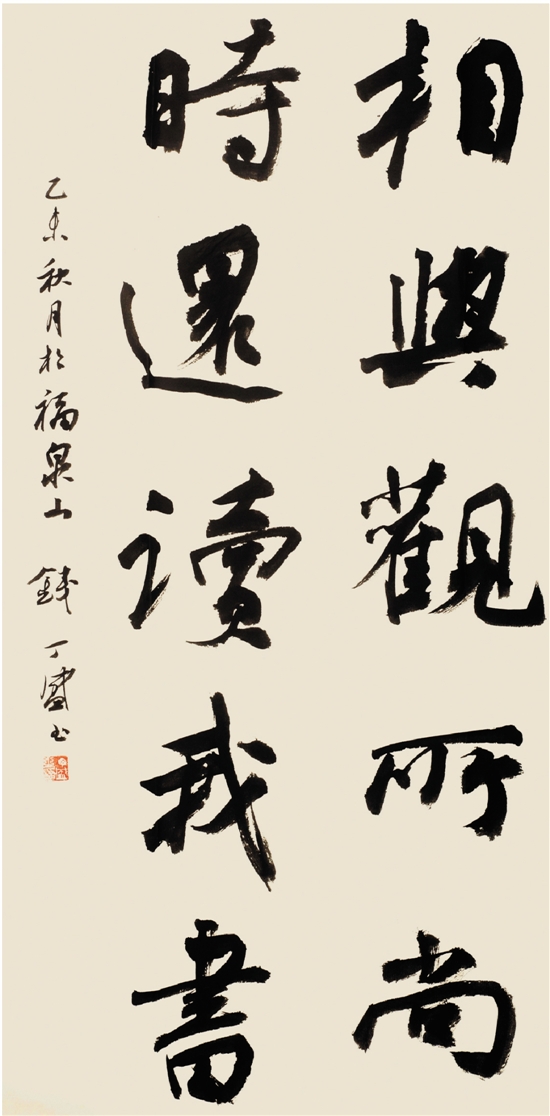 相與觀所尚
時還讀我書
乙未秋月於福泉山 錢丁盛书